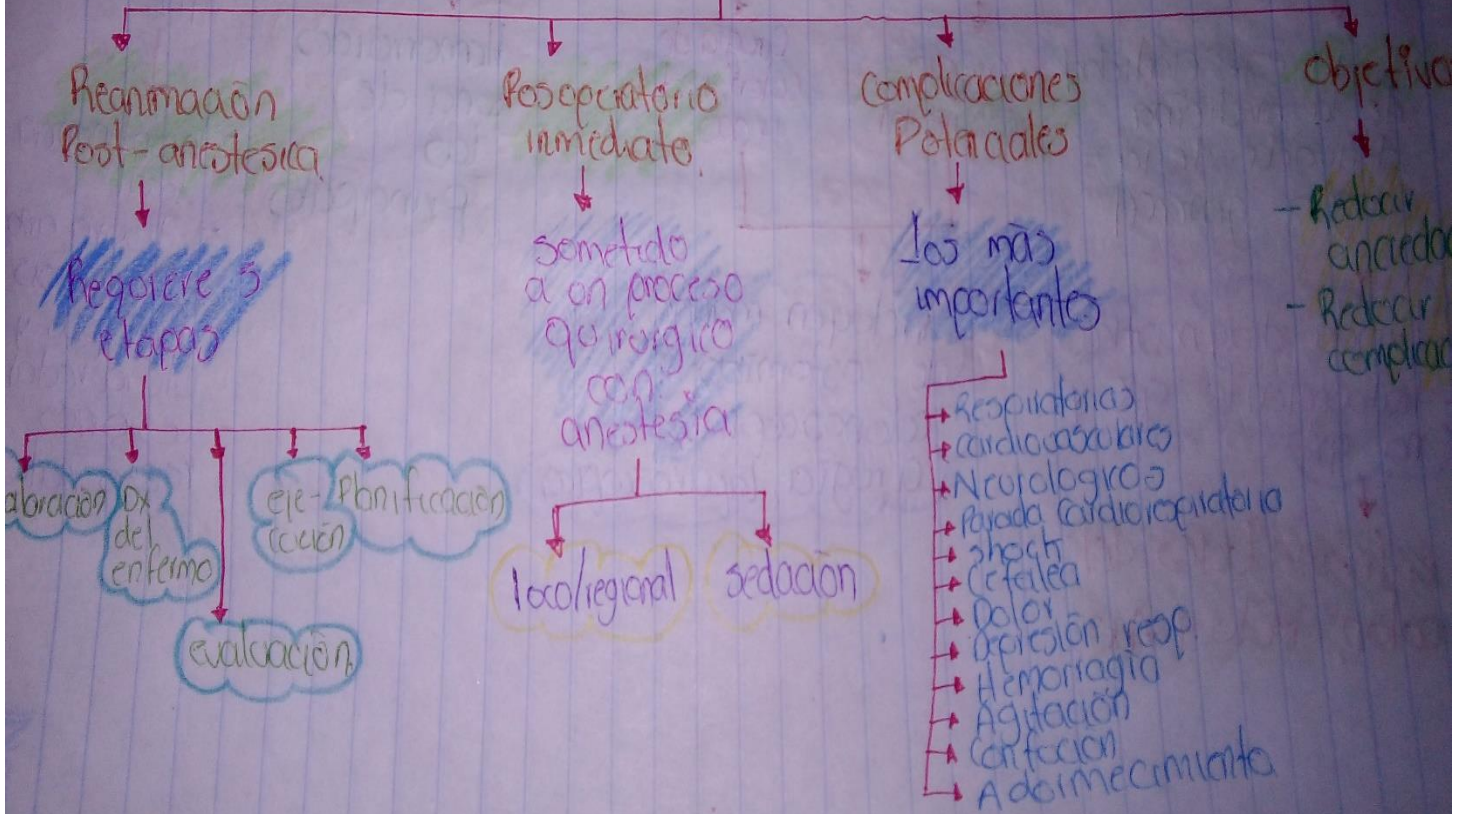 Reanimación
Post-anestesica
Requiere 5
etapas
aloración
Dx
del
enfermo
evaluación
eje-
cición
Planificación
Posoperatorio
inmediato
sometido
a un proceso
quirurgico
con
anestesia
loco/regional
sedación
Complicaciones
Potenciales
los más
importantes
Respiratorias
cardiovasculares
Neurologicos
Parada cardiorespiratorio
shock
Cefalea
Dolor
depresión resp
Hemorragia
Agitación
Confucion
Adormecimiento
Objetivo
- Reducir
anciedad
- Reducir
complicac